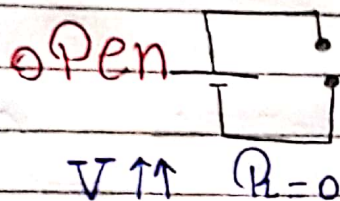 open
V ↑↑ R=0